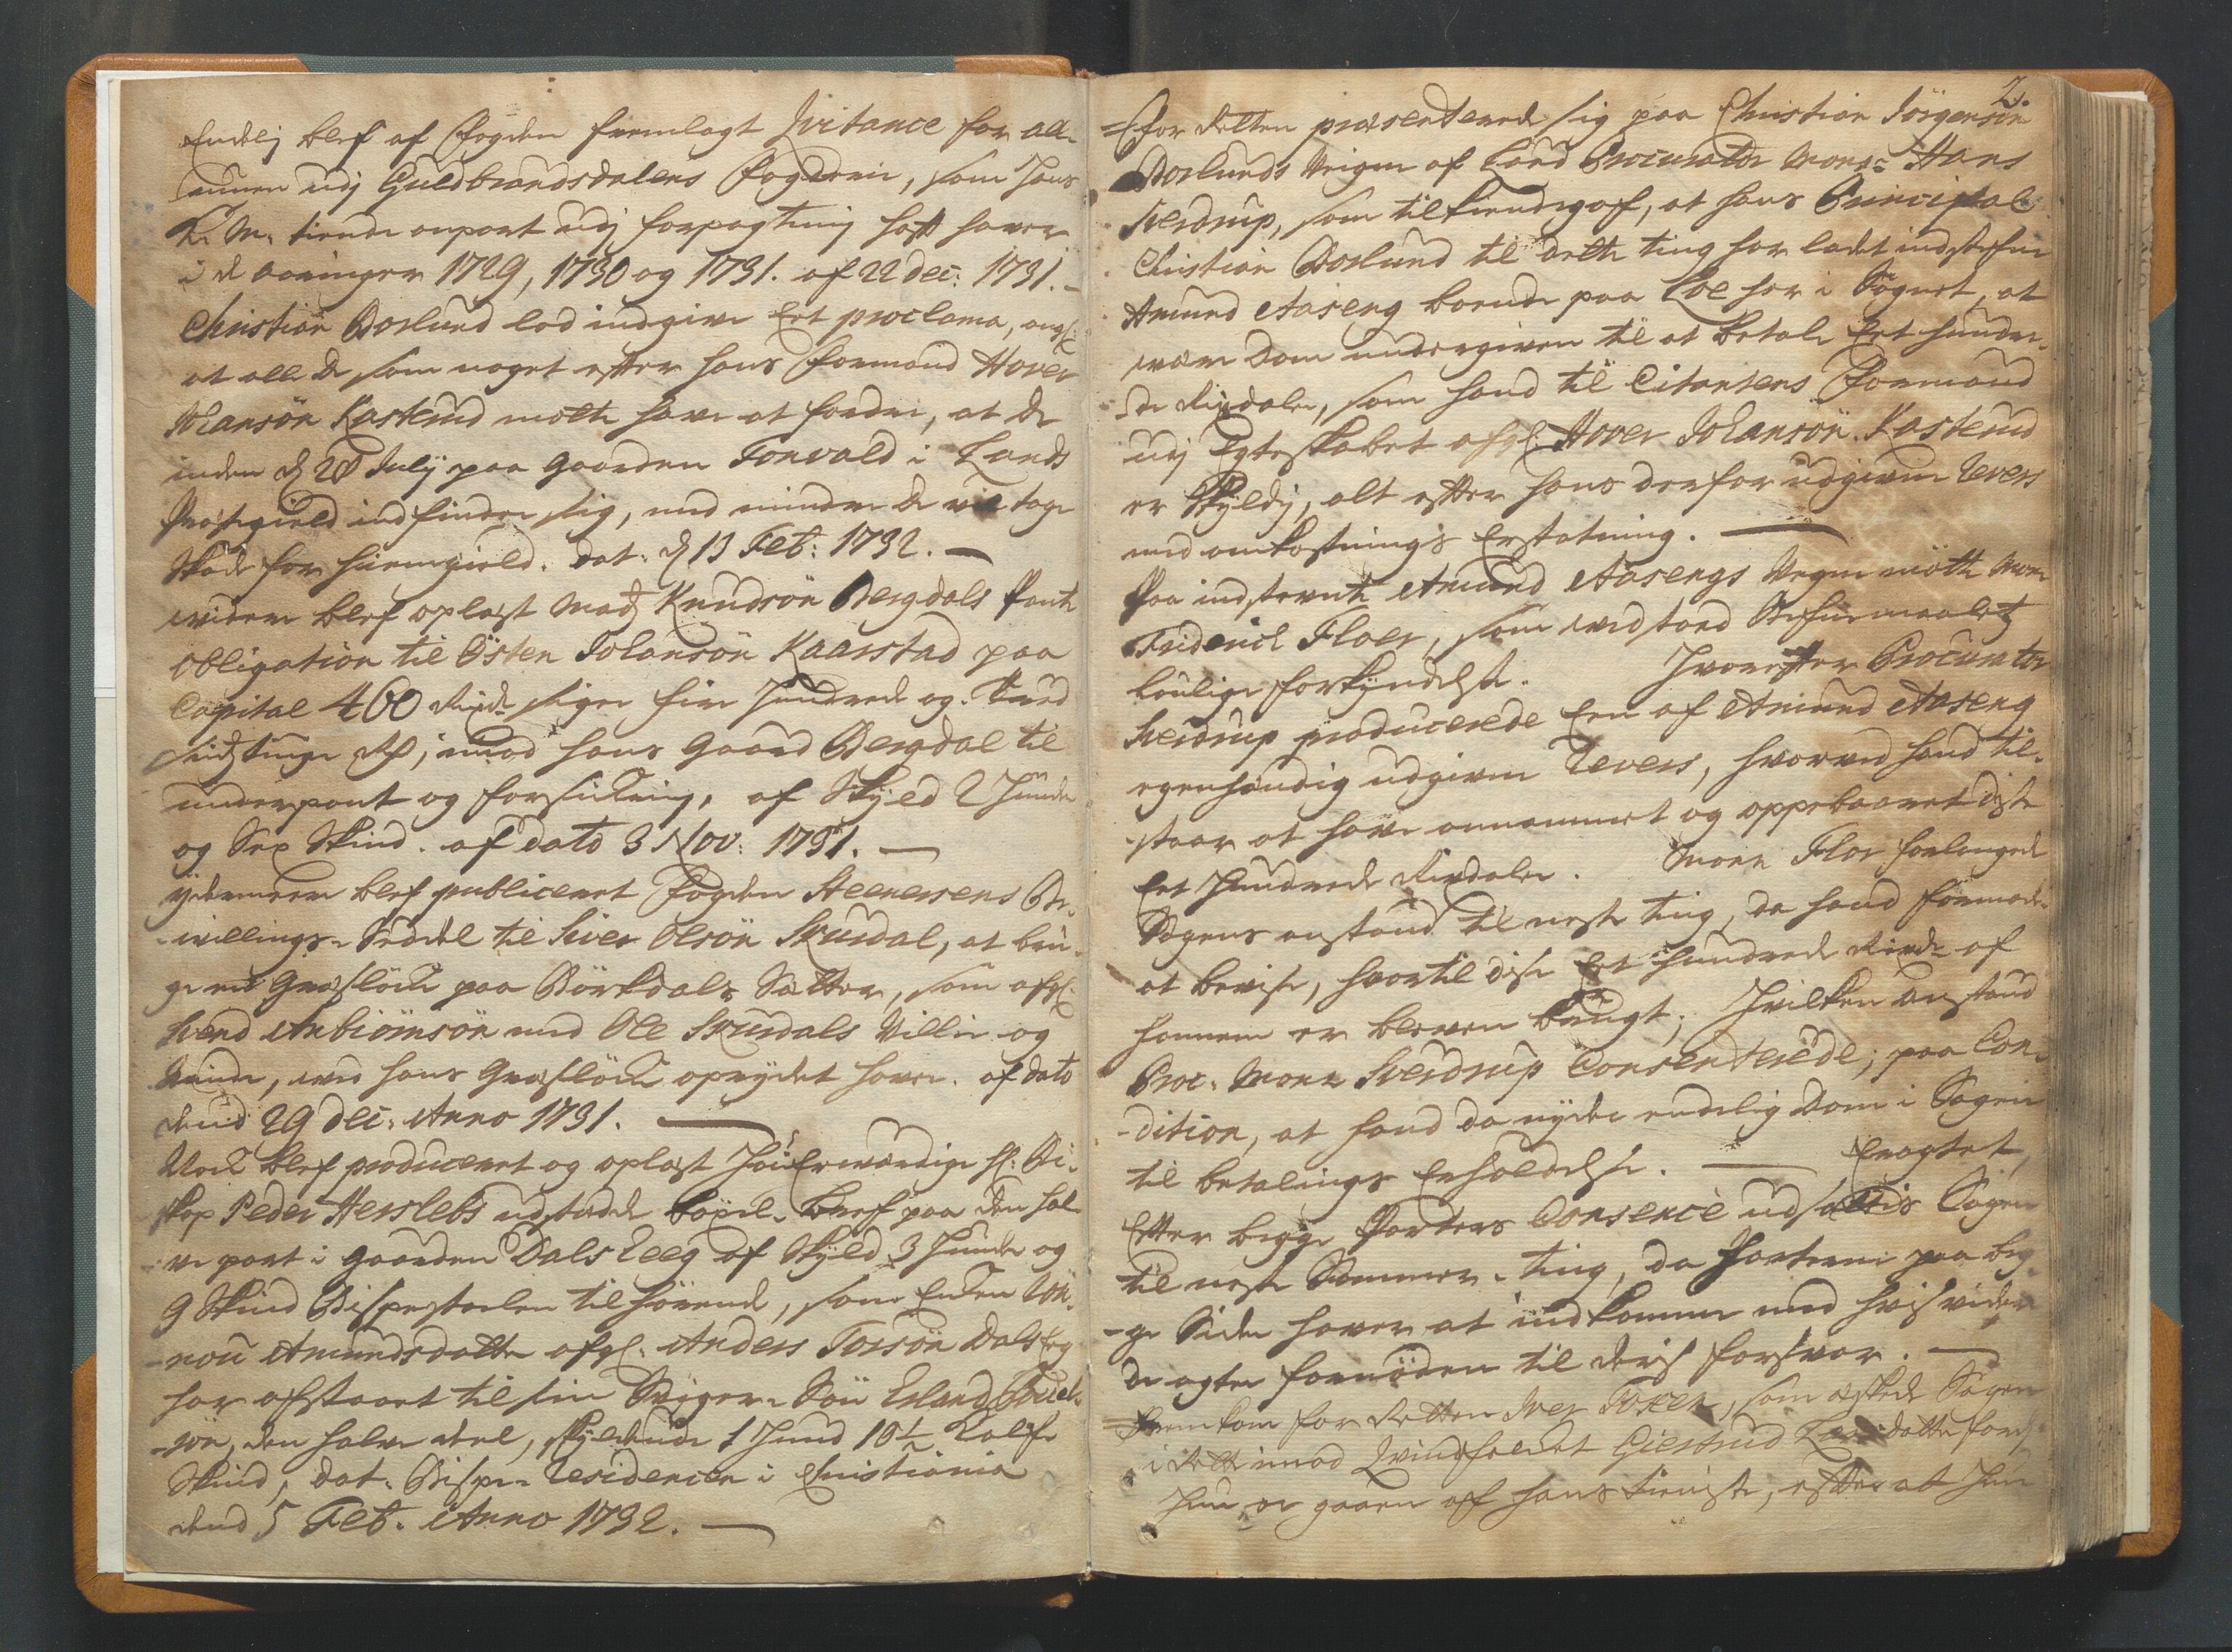 Endelj blef af Fogden fremlagt Qvitance for all-
muen udj Guldbrandsdalens Fogderie, som Hans
K. M. tiende anpart udj forpagtning hafft haver
i de aaringer 1729, 1730 og 1731. af 22 dec: 1731.-
Christian Borlund lod indgive Eet proclama, ang:
at alle de som noget effter hans Formand Hover
Johansön Kasterud motte have at fordre, at de
inden d 28 July paa gaarden Tonvald i Lands
Præstegield indfinder sig, med mindre de vil tage
skade for hiemgield. dat: d 13 Feb: 1732. —
widere blef oplæst Mads Knudsön Bergdals Pante
obligation til Östen Johansön Kaarstad paa
Capital 460 Rixdr siger fire Hundrede og
tredsindstiuge Rd, imod hans gaard Bergdal til
underpant og forsickring, af Skyld 2 Huuder
og Sex Skind. af dato 3 Nov: 1731. —
ydermeere blef publiceret Fogden Steenersens Be-
-villings-Seddel til Siver Olsön Skurdal, at bru-
ge ved Græsløcke paa Börkdals Sætter, som afg:
Svend Anbiörnsön med Ole Skurdals Villie og
Minde, ved hans Græsløcke oprydet haver. af dato
dend 29 dec: Anno 1731. —
Noch blef produceret og oplæst HöyErværdige Hr: Bi-
skop Peder Herslebs udstædde böxel-bref paa den hal-
-ve part i gaarden Dals Eeg af Skyld 3 Huuder og
9 Skind Bispestoelen tilhörende, som Encken Rön-
-nou Amundsdatter afg: Anders Torsön Dals Eeg
har afstaaet til sin Svoger-Sön Erland Pouel-
-sön, den halve deel, skyldende 1 Huud 10½ Kalfs-
Skind, dat. Bispe-Residencen i Christiania
dend 5 Feb. Anno 1732. —
2.
=For Retten præsenterede sig paa Christian Jörgensön
Borlunds Veigne af Laud Procurator Monsr Hans
Sverdrup, som tilkiendegaf, at hans Principal
Christian Borlund til dette ting har ladet indstefne
Amund Aaseng boende paa Loe her i Sognet, at
være Dom undergiven til at betale Eet hundre-
-de Rixdaler, som hand til Citantens Formand
udj Egteskabet afg: Hover Johansön Kasterud
er skyldig, alt effter hans derfor udgivne Revers
med omkostnings Erstatning. —
Paa indstevnte Amund Aasengs Vegne mötte Monsr
Friderich Floer, som vedstoed Stefnemaalets
loulige forkyndelse. Hvoreffter Procurator
Sverdrup producerede Een af Amund Aaseng
egenhændig udgiven Revers, hvorved hand til-
-staar at have annammet og oppebaaret disse
Eet Hundrede Rixdaler. Monsr Flor forlangede
Sagens anstand til neste ting, da hand formode-
at bevise, hvortil disse Eet hundrede Rixdr af
hannem er bleven brugt; Hvilken anstand
Proc: Monsr Sverdrup Consenterede; paa Con-
-dition, at hand da nyder endelig Dom i Sagen
til betalings Erholdelse. — Eragtet,
Effter begge Parters Consence udsættis Sagen
til neste Sommer-ting, da Parterne paa beg-
-ge Sider haver at indkomme med hvis videre
de agter fornöden til deris forsvar. —
=Fremkom for Retten Iver Toxen, som æskede Sagen
i Rette imod Qvindfolket Giertrud Larsdatter for
hun er gaaen af hans tieniste, effter at hun